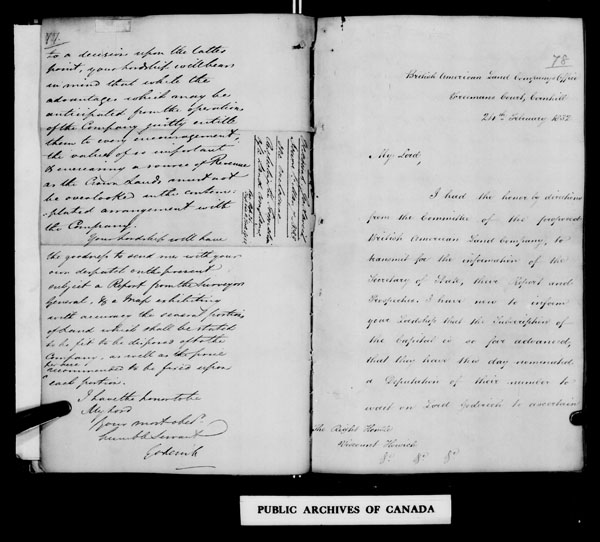 77.
to a decision upon the latter
point, your Lordship will bear
in mind that while the
advantages which may be
anticipated from the operations
of the Company justly entitle
them to every encouragement,
the value of so important
& increasing a source of Revenue
as the Crown Lands must not
be overlooked in the contem-
plated arrangement with
the Company.
Your Lordship will have
the goodness to send me with your
own despatch on the present
subject a Report from the Surveyor
General, & a Map exhibiting
with accuracy the several portions
of Land which shall be stated
to be fit to be disposed of to the
Company, as well as the price
he may
recommended to be fixed upon
each portion.
I have the honor to be
My Lord
Your most obt
humble Servant
Goderich
78
British American Land Company Office
Freemans Court, Cornhill
24th February 1832
My Lord,
I had the honor by directions
from the Committee of the proposed
British American Land Company, to
transmit for the information of the
Secretary of State, their Report and
Prospectus. I have now to inform
your Lordship that the Subscription of
the Capital is so far advanced,
that they have this day nominated
a Deputation of their number to
wait on Lord Goderich to ascertain
The Right Honble
Viscount Howick
&c &c &c
PUBLIC ARCHIVES OF CANADA